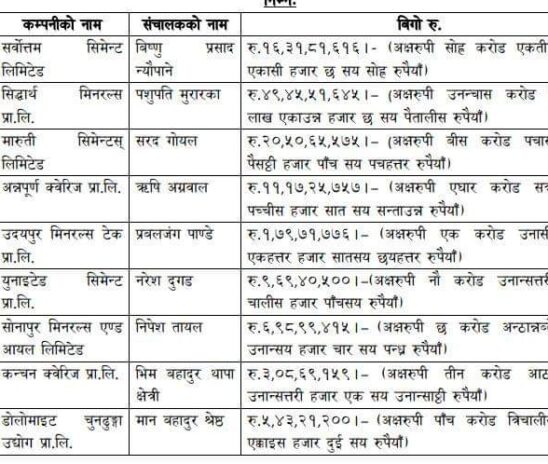 कम्पनीको नाम संचालकको नाम बिगो रु.
सर्वोत्तम सिमेन्ट बिष्णु प्रसाद रु.१६,३१,८१,६१६।- (अक्षरुपी सोह्र करोड एकती
लिमिटेड न्यौपाने एकासी हजार छ सय सोह्र रुपैयाँ)
सिद्धार्थ मिनरल्स पशुपति मुरारका रु.४९,४५,५१,६४५।- (अक्षरुपी उनन्चास करोड
प्रा.लि. लाख एकाउन्न हजार छ सय पैतालीस रुपैयाँ)
मारुती सिमेन्टस् सरद गोयल रु.२०,५०,६५,५७५।- (अक्षरुपी बीस करोड पचास
लिमिटेड पैसट्ठी हजार पाँच सय पचहत्तर रुपैयाँ)
अन्नपूर्ण क्वेरिज प्रा.लि. ऋषि अग्रवाल रु.११,१७,२५,७५७।- (अक्षरुपी एघार करोड सत्र
पच्चीस हजार सात सय सन्ताउन्न रुपैयाँ)
उदयपुर मिनरल्स टेक प्रवलजंग पाण्डे रु.१,७९,७१,७७६।- (अक्षरुपी एक करोड उनासी
प्रा.लि. एकहत्तर हजार सातसय छयहत्तर रुपैयाँ)
युनाइटेड सिमेन्ट नरेश दुगड रु.९,६९,४०,५००।-(अक्षरुपी नौ करोड उनान्सत्तरी
प्रा.लि. चालीस हजार पाँचसय रुपैयाँ)
सोनापुर मिनरल्स एण्ड निपेश तायल रु.६,९८,९९,४१५।-(अक्षरुपी छ करोड अन्ठान्नब्बे
आयल लिमिटेड उनान्सय हजार चार सय पन्ध्र रुपैयाँ)
कन्चन क्वेरिज प्रा.लि. भिम बहादुर थापा रु.३,०८,६९,१५९।-(अक्षरुपी तीन करोड आठ
क्षेत्री उनान्सत्तरी हजार एक सय उनान्साट्ठी रुपैयाँ)
डोलोमाइट चुनढुङ्गा मान बहादुर श्रेष्ठ रु.५,४३,२१,२००।-(अक्षरुपी पाँच करोड त्रिचालीस
उद्योग प्रा.लि. एक्काइस हजार दुई सय रुपैयाँ)